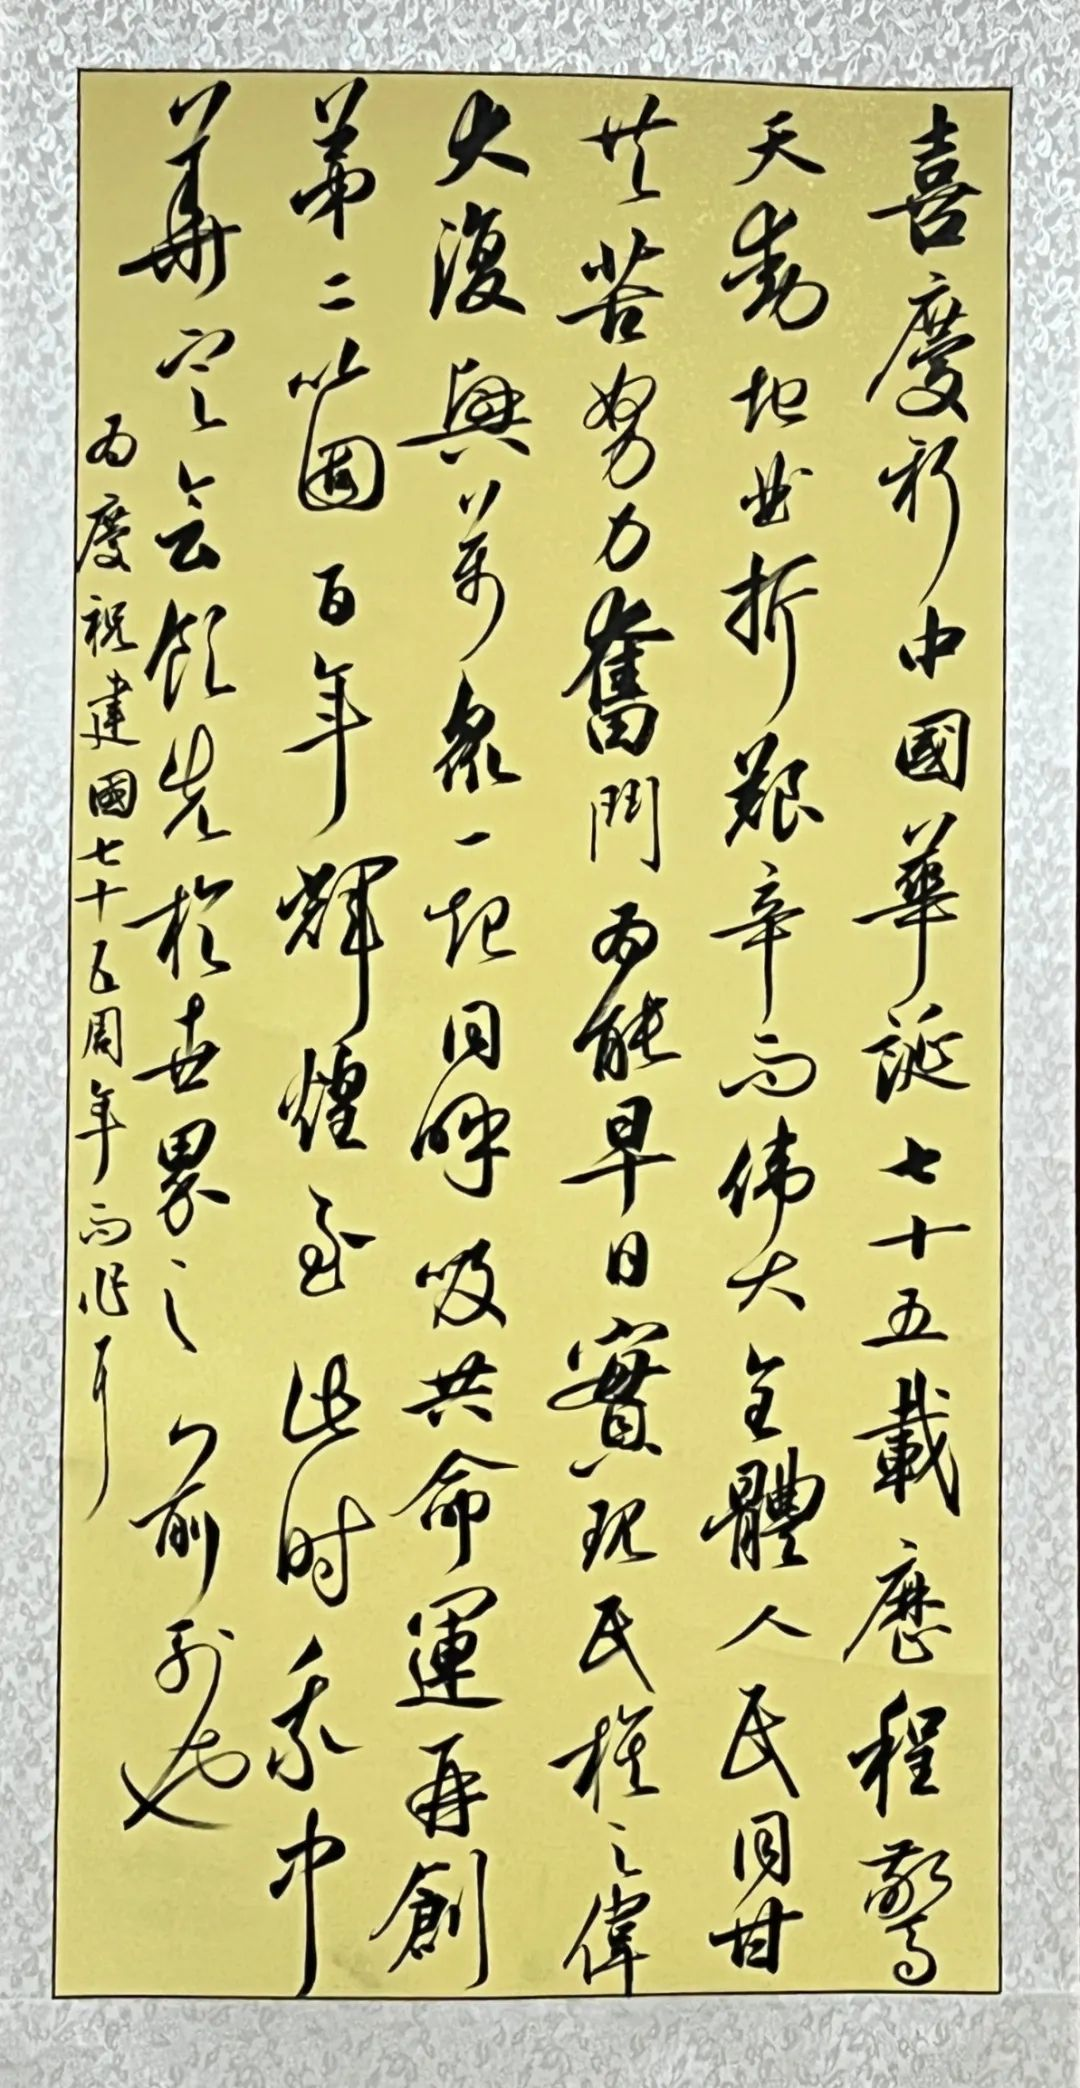 喜慶新中國華誕七十五載歷程驚
天動地曲折艱辛而伟大全體人民同甘
共苦努力奮鬥为能早日實现民族之偉
大復興萬眾一起同呼吸共命運再創
第二个圆百年輝煌至此时我中
華定会领先於世界之前列也
为慶祝建國七十五周年而作耳